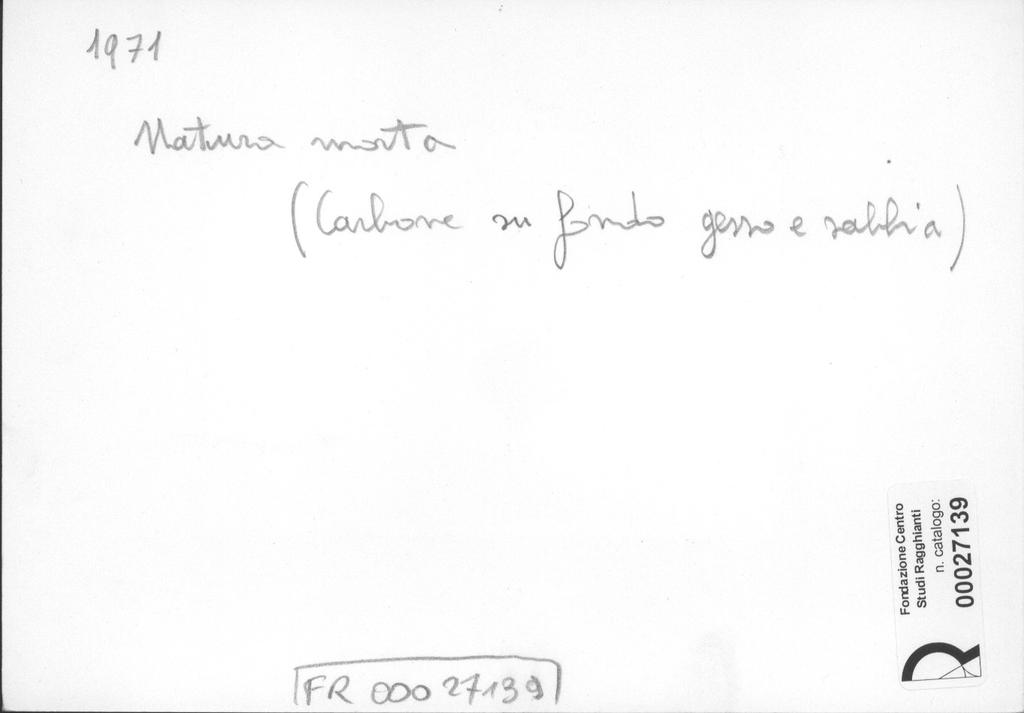 1971
Natura morta
(Carbone su fondo gesso e sabbia)
Fondazione Centro
Studi Ragghianti
n. catalogo:
00027139
FR 00027139